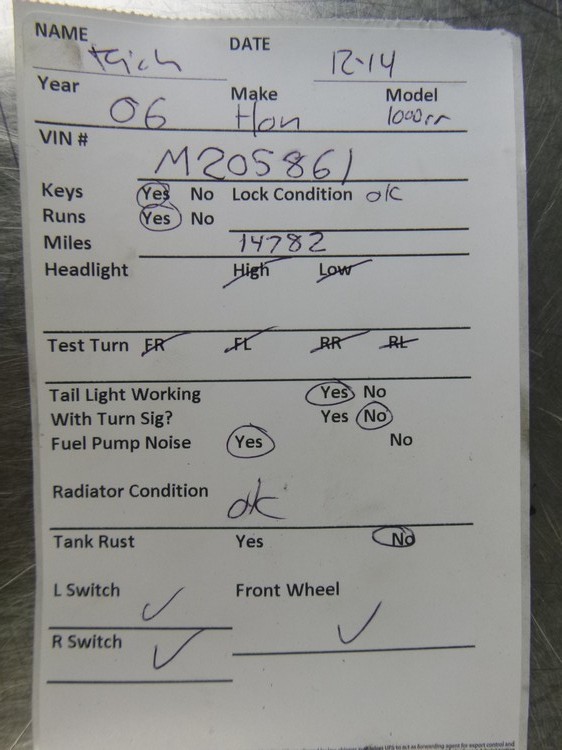 NAME Rich DATE 12-14
Year 06 Make Hon Model 1000rr
VIN # M205861
Keys Yes No Lock Condition ok
Runs Yes No
Miles 14782
Headlight High Low
Test Turn FR FL RR RL
Tail Light Working Yes No
With Turn Sig? Yes No
Fuel Pump Noise Yes No
Radiator Condition ok
Tank Rust Yes No
L Switch ✓ Front Wheel ✓
R Switch ✓